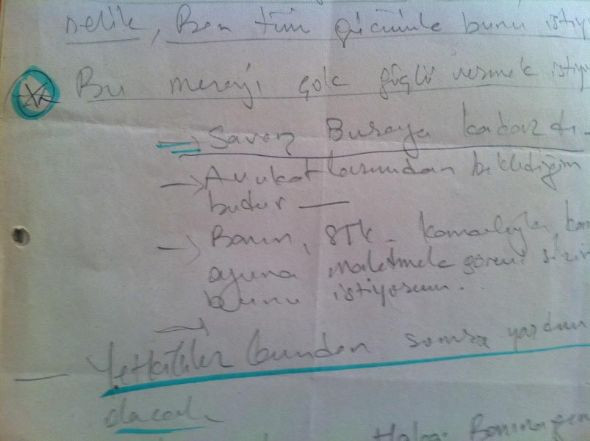 nelik, Ben tüm gücümle bunu istiy
Bu mesajı çok güçlü vermek istiy
→ Savaş Buraya kadardı.
→ Avukatlarımdan beklediğim
budur —
→ Basın, STK. kamuoyla, kam
oyuna maletmek görevi sizin
bunu istiyorum..
→
— Yetkililer bundan sonra yardım
olacak